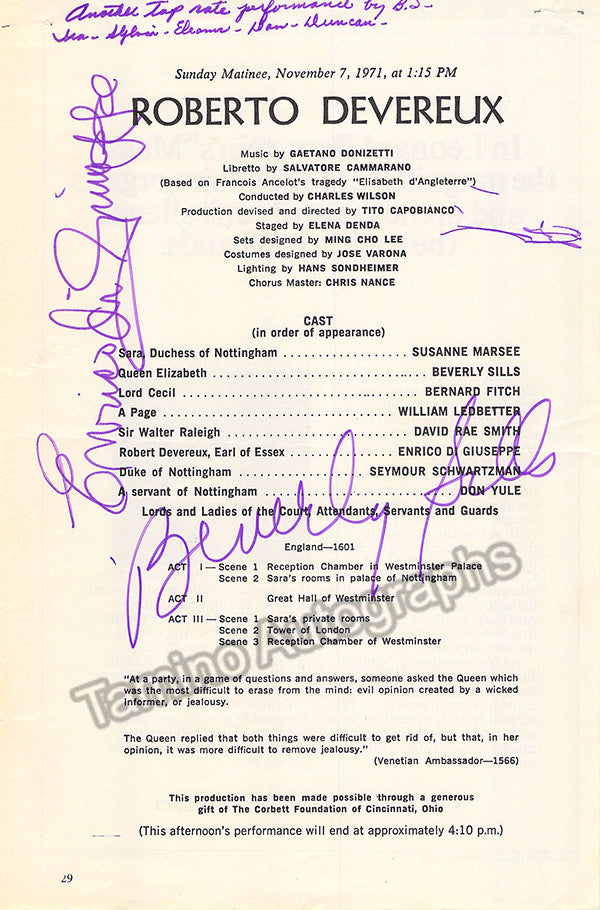 Another top rate performance by B.S-
Ira- Sylvia- Eleanor- Don- Duncan-
Sunday Matinee, November 7, 1971, at 1:15 PM
ROBERTO DEVEREUX
Music by GAETANO DONIZETTI
Libretto by SALVATORE CAMMARANO
(Based on Francois Ancelot's tragedy "Elisabeth d'Angleterre")
Conducted by CHARLES WILSON
Production devised and directed by TITO CAPOBIANCO
Staged by ELENA DENDA
Sets designed by MING CHO LEE
Costumes designed by JOSE VARONA
Lighting by HANS SONDHEIMER
Chorus Master: CHRIS NANCE
CAST
(in order of appearance)
Sara, Duchess of Nottingham ..................... SUSANNE MARSEE
Queen Elizabeth .............................. BEVERLY SILLS
Lord Cecil .............................. BERNARD FITCH
A Page .............................. WILLIAM LEDBETTER
Sir Walter Raleigh .............................. DAVID RAE SMITH
Robert Devereux, Earl of Essex .................. ENRICO DI GIUSEPPE
Duke of Nottingham ..................... SEYMOUR SCHWARTZMAN
A servant of Nottingham .............................. DON YULE
Lords and Ladies of the Court, Attendants, Servants and Guards
England—1601
ACT I—Scene 1 Reception Chamber in Westminster Palace
Scene 2 Sara's rooms in palace of Nottingham
ACT II Great Hall of Westminster
ACT III—Scene 1 Sara's private rooms
Scene 2 Tower of London
Scene 3 Reception Chamber of Westminster
"At a party, in a game of questions and answers, someone asked the Queen which
was the most difficult to erase from the mind: evil opinion created by a wicked
informer, or jealousy.
The Queen replied that both things were difficult to get rid of, but that, in her
opinion, it was more difficult to remove jealousy."
(Venetian Ambassador—1566)
This production has been made possible through a generous
gift of The Corbett Foundation of Cincinnati, Ohio
(This afternoon's performance will end at approximately 4:10 p.m.)
29
Enrico Di Giuseppe
Beverly Sills
Tamino Autographs